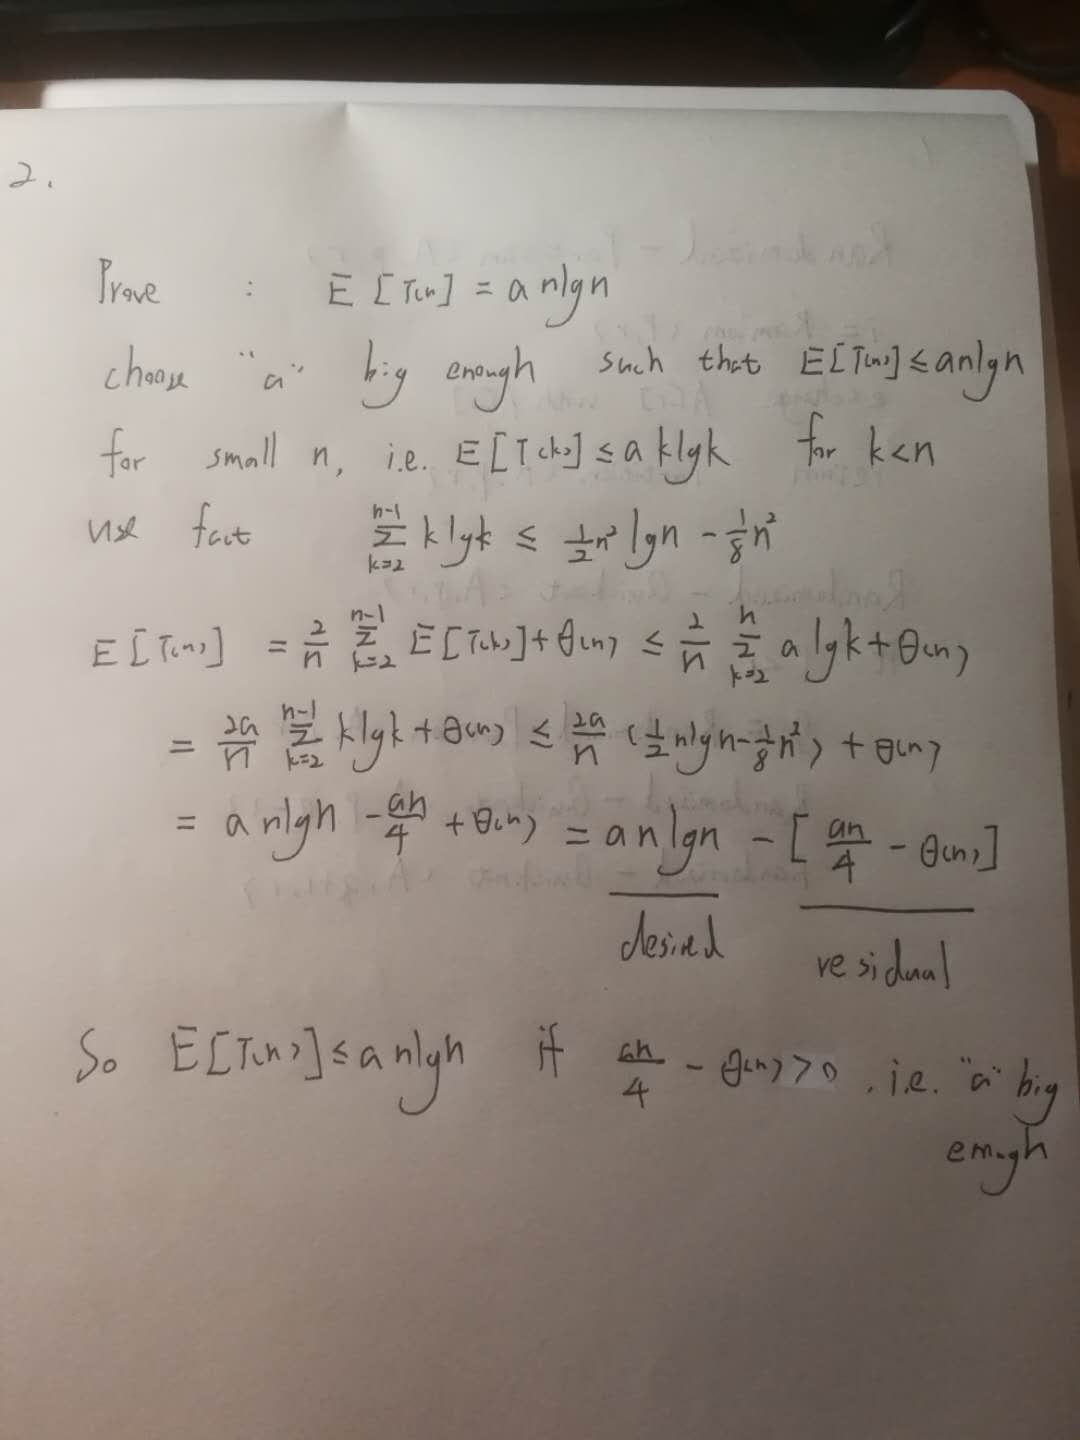 2.
Prove : E[T(n)] = a nlgn
choose "a" big enough such that E[T(n)] ≤ anlgn
for small n, i.e. E[T(k)] ≤ a klgk for k<n
use fact \sum_{k=2}^{n-1} klgk ≤ \frac{1}{2}n^2 lgn - \frac{1}{8}n^2
E[T(n)] = \frac{2}{n} \sum_{k=2}^{n-1} E[T(k)] + θ(n) ≤ \frac{2}{n} \sum_{k=2}^{n} a lgk + θ(n)
= \frac{2a}{n} \sum_{k=2}^{n-1} klgk + θ(n) ≤ \frac{2a}{n} (\frac{1}{2}nlgn - \frac{1}{8}n^2) + θ(n)
= a nlgn - \frac{an}{4} + θ(n) = a nlgn - [\frac{an}{4} - θ(n)]
desired residual
So E[T(n)] ≤ a nlgn if \frac{an}{4} - θ(n) > 0 , i.e. "a" big
enough